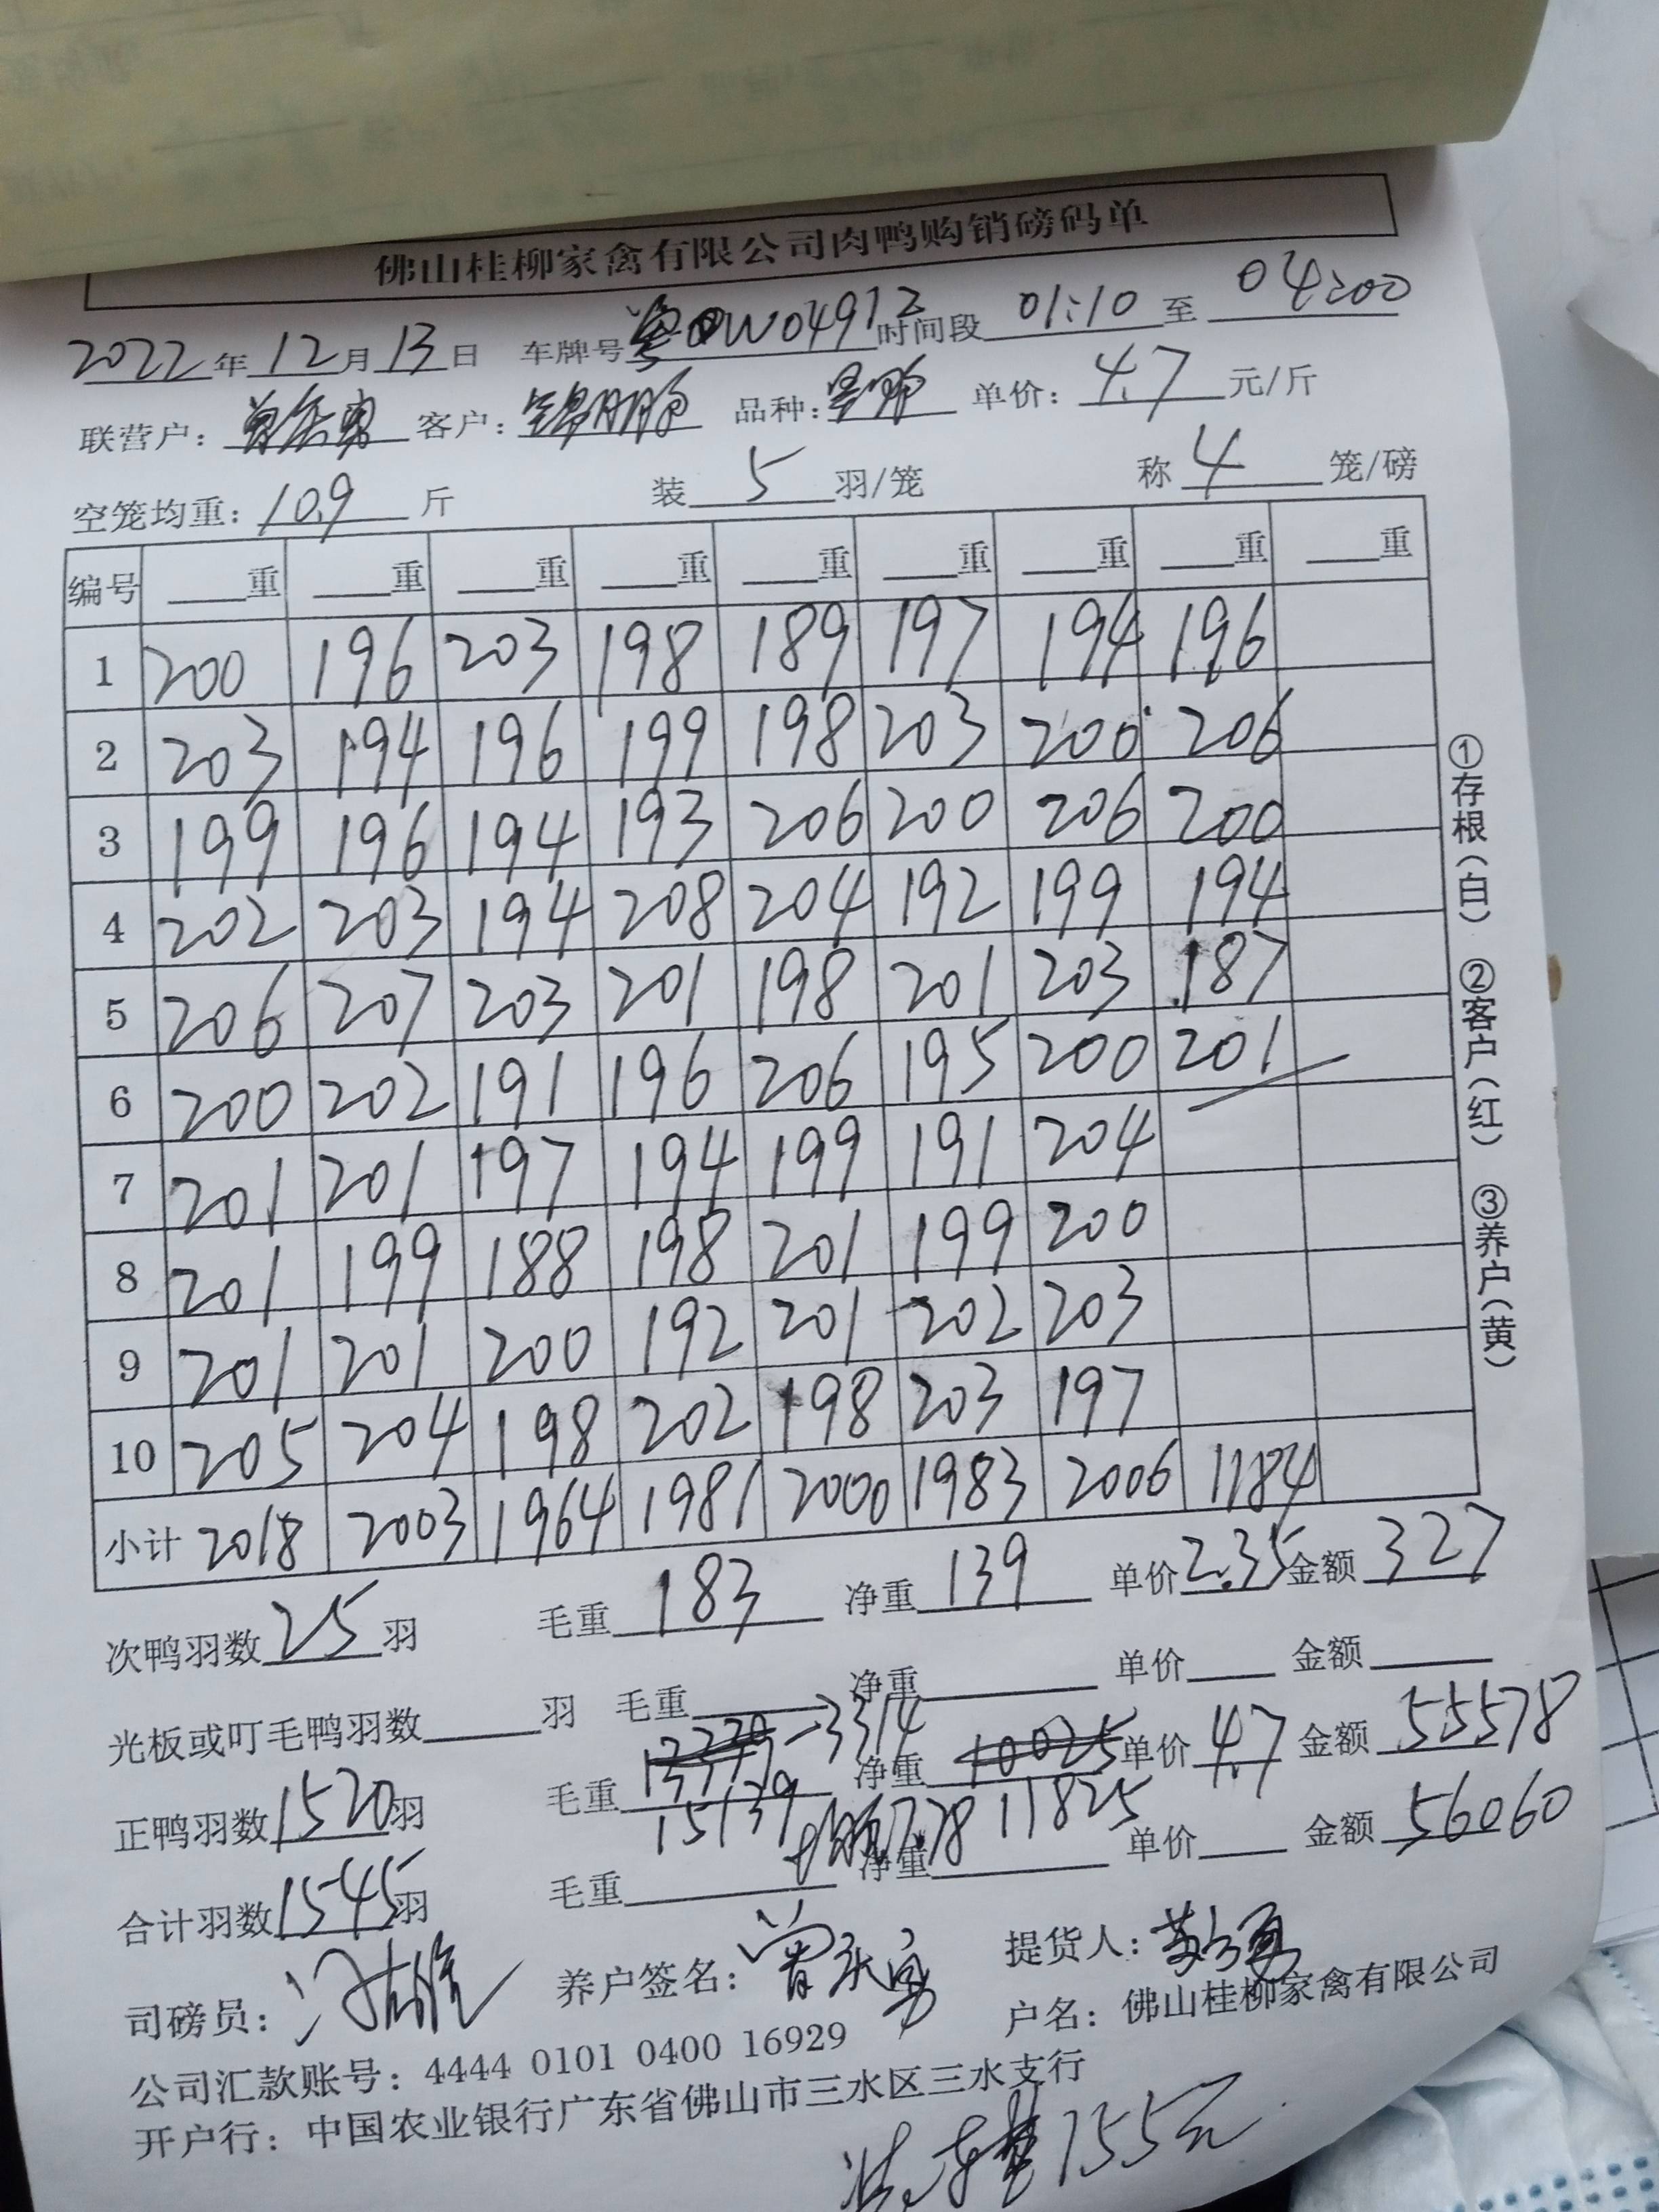 佛山桂柳家禽有限公司肉鸭购销磅码单
2022年12月13日 车牌号粤QW0491Z时间段01:10至04:00
联营户：曾庆勇 客户：锦鹏 品种： 单价：4.7元/斤
空笼均重：10.9斤 装5羽/笼 称4笼/磅
编号 重 重 重 重 重 重 重 重 重
1 200 196 203 198 189 197 194 196
2 203 194 196 199 198 203 200 206
3 199 196 194 193 206 200 206 200
4 202 203 194 208 204 192 199 194
5 206 207 203 201 198 201 203 187
6 200 202 191 196 206 195 200 201
7 201 201 197 194 199 191 204
8 201 199 188 198 201 199 200
9 201 201 200 192 201 202 203
10 205 204 198 202 198 203 197
小计 2018 2003 1964 1981 2000 1983 2006 1184
次鸭羽数25羽 毛重183 净重139 单价2.35金额327
光板或叮毛鸭羽数羽 毛重 净重 单价 金额
正鸭羽数1520羽 毛重15139 -3314 净重11825 单价4.7 金额55578
合计羽数1545羽 毛重 7.78 净重 单价 金额56060
司磅员： 养户签名：曾庆勇 提货人：
公司汇款账号：4444 0101 0400 16929 户名：佛山桂柳家禽有限公司
开户行：中国农业银行广东省佛山市三水区三水支行
洗车费155元
①存根（白） ②客户（红） ③养户（黄）